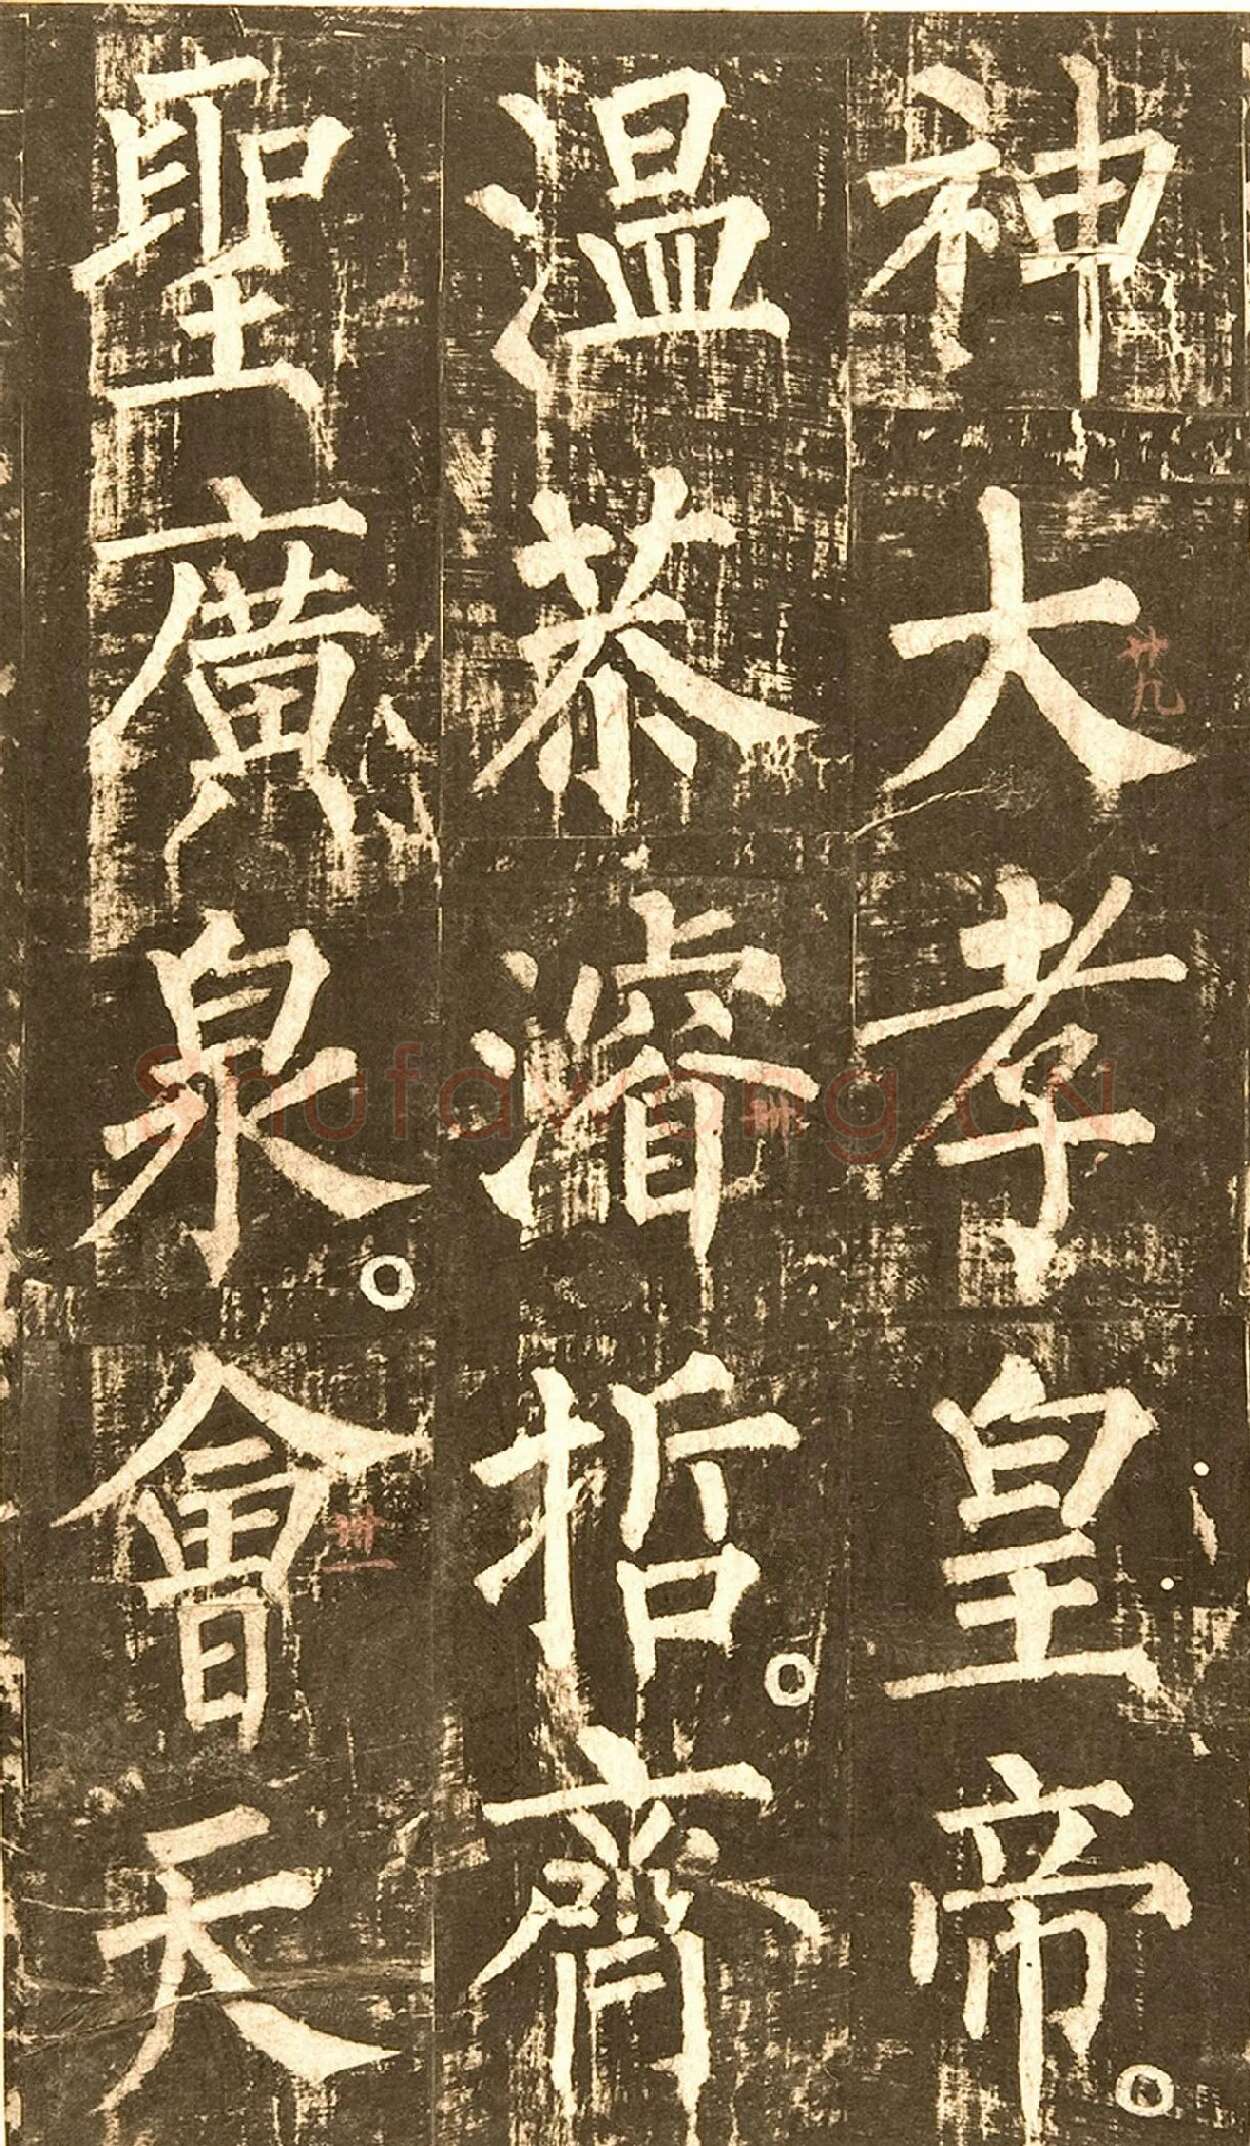 神大孝皇帝。
溫恭濬哲。齊
聖廣泉。會天
廿九
卅
卅一
Shufawang.CN